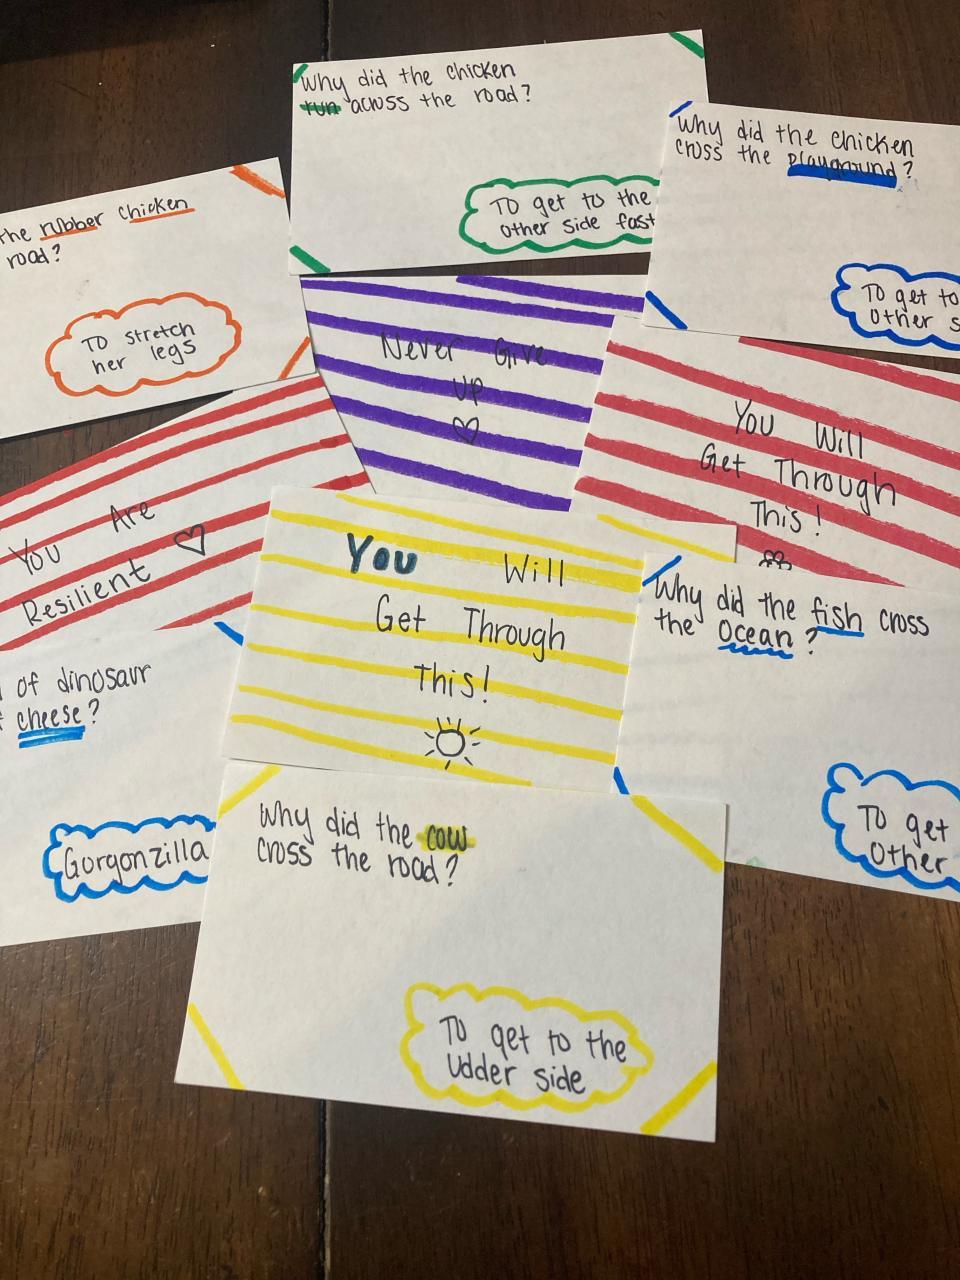 Why did the chicken
run across the road?
To get to the
other side fast
Why did the chicken
cross the playground?
To get to
other s
the rubber chicken
road?
To stretch
her legs
Never Give
Up
You Will
Get Through
This!
You Are
Resilient
You Will
Get Through
This!
Why did the fish cross
the Ocean?
To get
Other
of dinosaur
cheese?
Gorgonzilla
Why did the cow
cross the road?
To get to the
Udder side